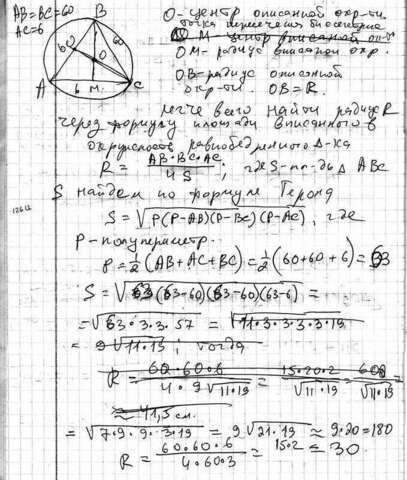 AB=BC=60
AC=6
O-центр описанной окр-ти
точка пересечения биссектрис
M центр вписанной окр-ти
OM-радиус вписанной окр.
OB=радиус описанной
окр-ти. OB=R.
A B C O M 6 60
легче всего найти радиус R
через формулу площади вписанного в
окружность равнобедренного Δ-ка
R = AB·BC·AC / 4S ; где S-пл-дь Δ ABC
S найдем по формуле Герона
S=√P(P-AB)(P-BC)(P-AC), где
P-полупериметр.
P=1/2(AB+AC+BC)=1/2(60+60+6)=63
S=√63(63-60)(63-60)(63-6) =
=√63·3·3·57 = √11·3·3·3·3·19
= 9√11·19 ; тогда
R = 60·60·6 / 4·9√11·19 = 15·20·2 / √11·19 = 600 / √11·19
≈ 41,5 см.
=√7·9·9·3·19 = 9√21·19 ≈ 9·20=180
R = 60·60·6 / 4·60·3 = 15·2 = 30